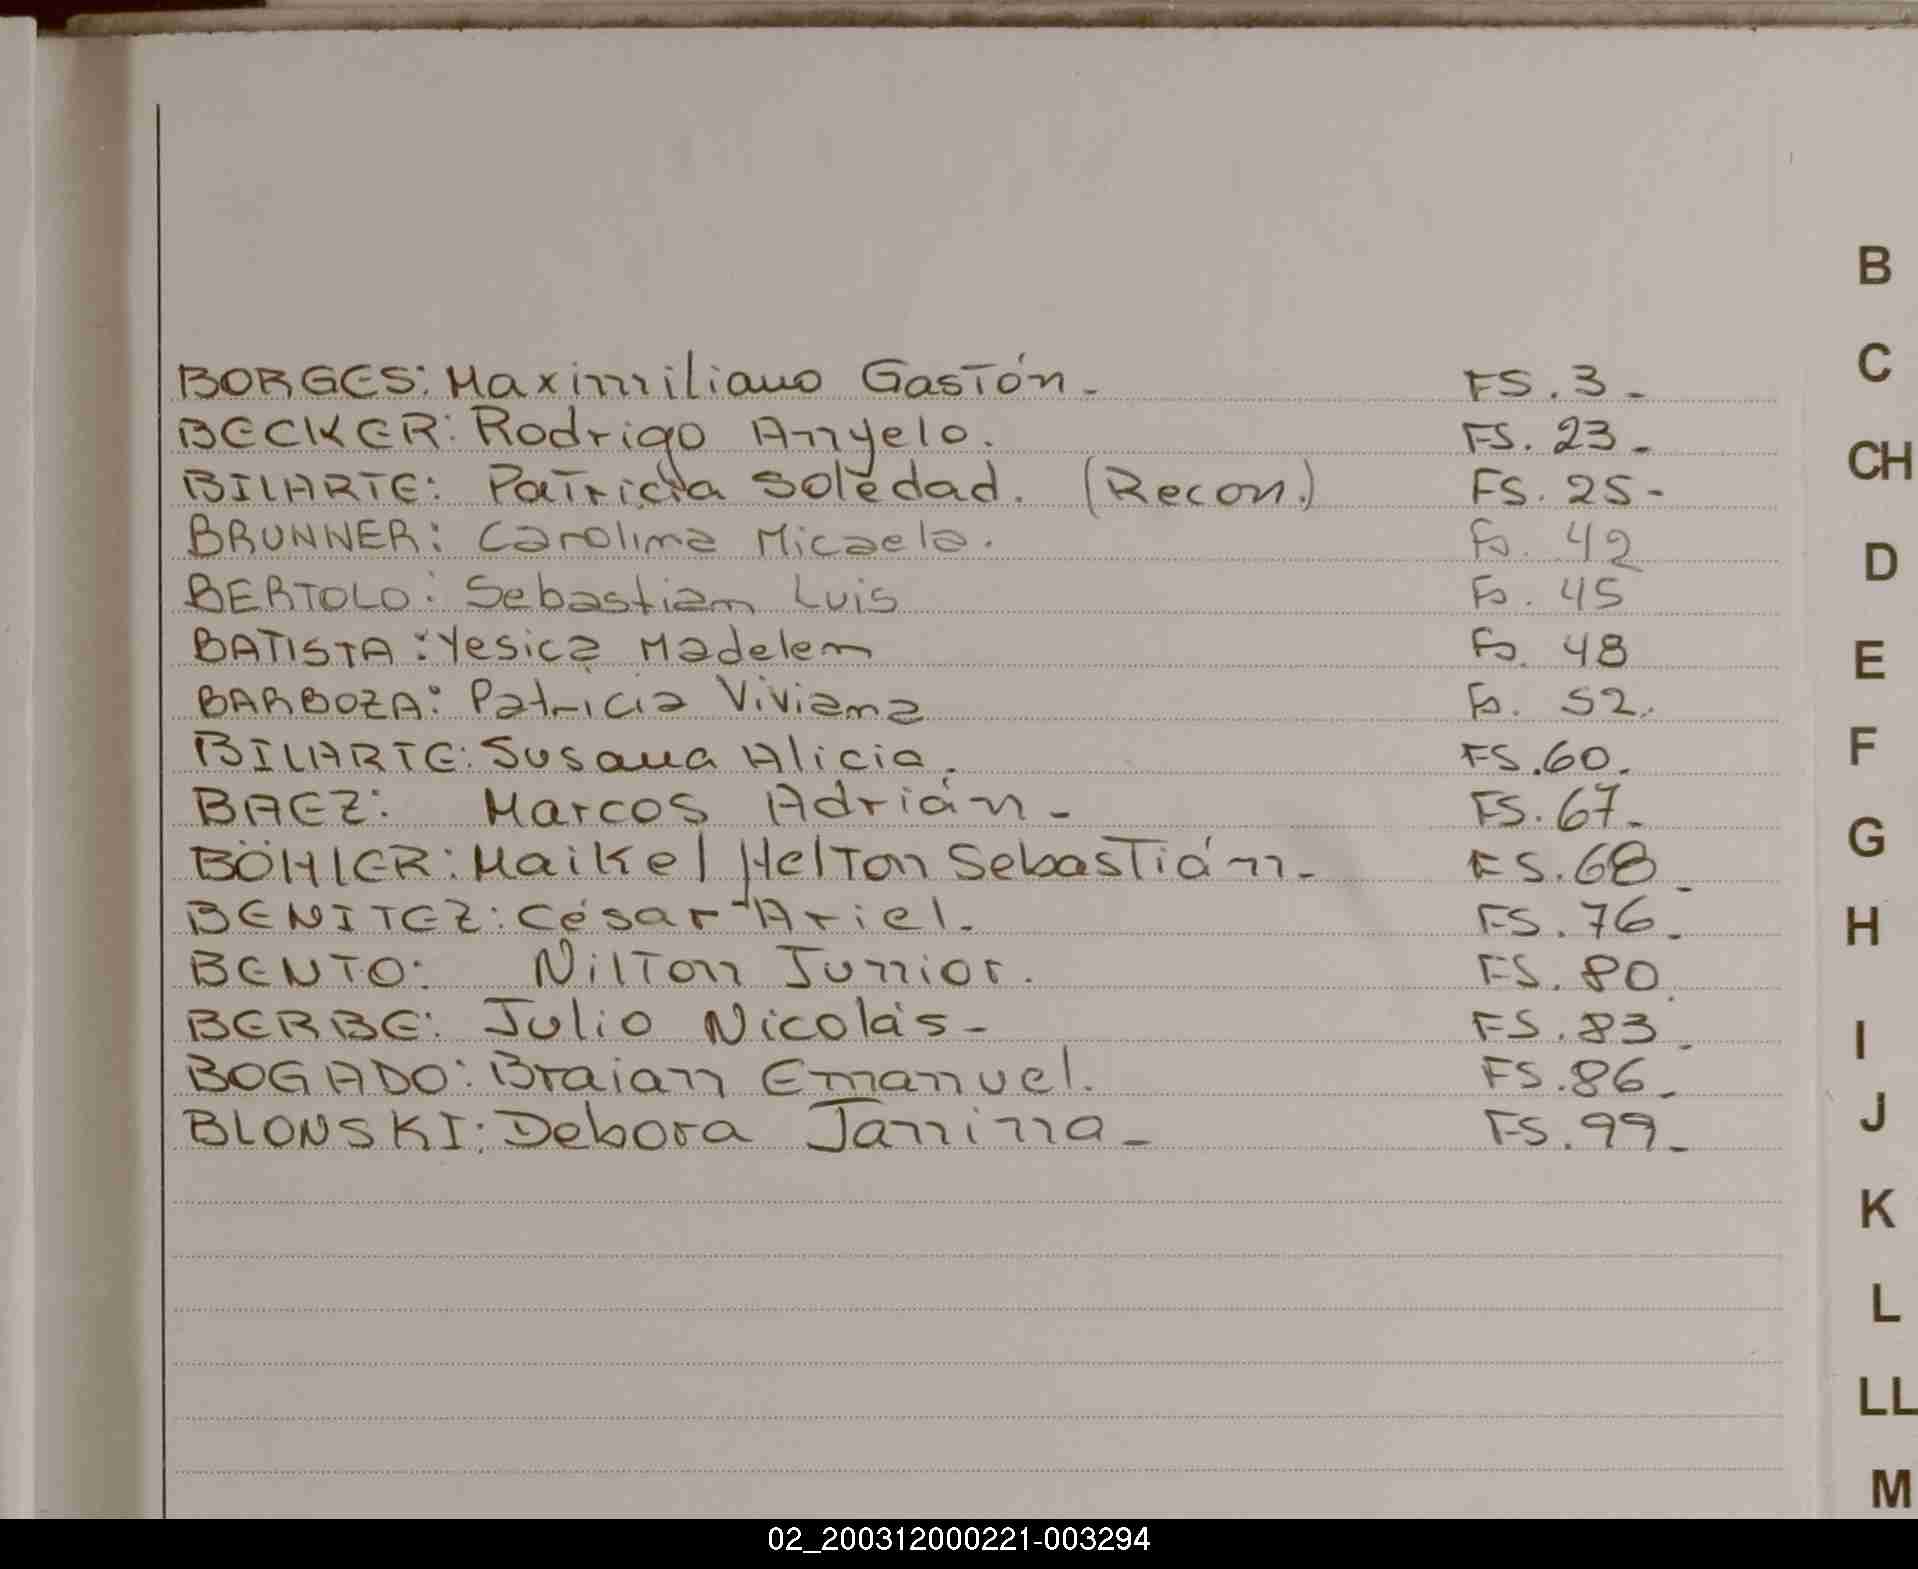 BORGES: Maximiliano Gastón- FS. 3-
BECKER: Rodrigo Anyelo. FS. 23-
BILHARTE: Patricia Soledad. (Recon.) FS. 25-
BRUNNER: Carolina Micaela. Fs. 42
BERTOLO: Sebastian Luis Fs. 45
BATISTA: Yesica Madelen Fs. 48
BARBOZA: Patricia Viviana Fs. 52.
BILHARTE: Susana Alicia. FS. 60.
BAEZ: Marcos Adrián- FS. 67-
BÖHLER: Maikel Helton Sebastián- FS. 68-
BENITEZ: César Ariel. FS. 76-
BENTO: Nilton Junior. FS. 80.
BERBE: Julio Nicolás- FS. 83-
BOGADO: Braian Emanuel. FS. 86-
BLONSKI: Debora Janina- FS. 99-
B
C
CH
D
E
F
G
H
I
J
K
L
LL
M
02_200312000221-003294